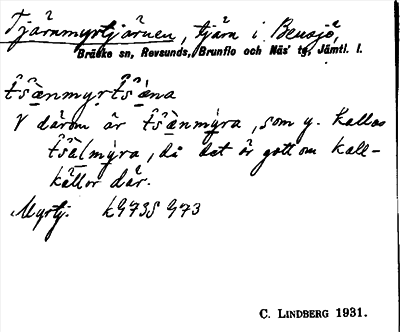 Tjärnmyrtjärnen, tjärn i Bensjö,
Bräcke sn, Revsunds, Brunflo och Näs' tg, Jämtl. l.
t̂s̀ænmyrt̂s̀æ̀na
V därom är t̂s̀ænmýra, som y. kallas
t̂s̀ælmýra, då det är gott om kall-
källor där.
Myrtj. kG73S G73
C. LINDBERG 1931.